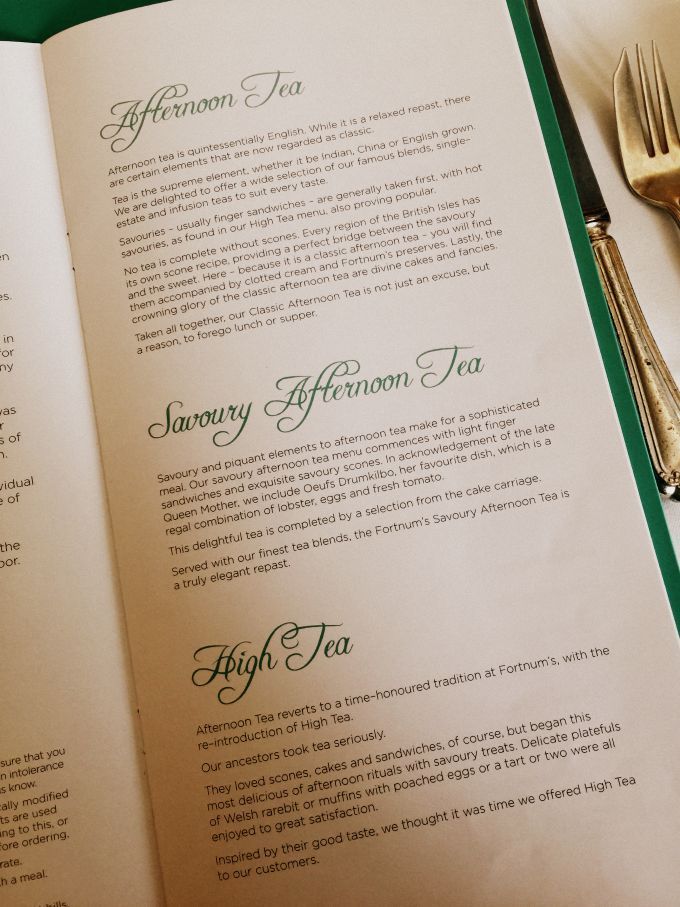 en
es.
in
for
ny
was
r
s of
n.
vidual
e of
the
oor.
sure that you
n intolerance
s know.
cally modified
ts are used
ng to this, or
fore ordering.
rate.
h a meal.
Afternoon Tea
Afternoon tea is quintessentially English. While it is a relaxed repast, there
are certain elements that are now regarded as classic.
Tea is the supreme element, whether it be Indian, China or English grown.
We are delighted to offer a wide selection of our famous blends, single-
estate and infusion teas to suit every taste.
Savouries – usually finger sandwiches – are generally taken first, with hot
savouries, as found in our High Tea menu, also proving popular.
No tea is complete without scones. Every region of the British Isles has
its own scone recipe, providing a perfect bridge between the savoury
and the sweet. Here – because it is a classic afternoon tea – you will find
them accompanied by clotted cream and Fortnum's preserves. Lastly, the
crowning glory of the classic afternoon tea are divine cakes and fancies.
Taken all together, our Classic Afternoon Tea is not just an excuse, but
a reason, to forego lunch or supper.
Savoury Afternoon Tea
Savoury and piquant elements to afternoon tea make for a sophisticated
meal. Our savoury afternoon tea menu commences with light finger
sandwiches and exquisite savoury scones. In acknowledgement of the late
Queen Mother, we include Oeufs Drumkilbo, her favourite dish, which is a
regal combination of lobster, eggs and fresh tomato.
This delightful tea is completed by a selection from the cake carriage.
Served with our finest tea blends, the Fortnum's Savoury Afternoon Tea is
a truly elegant repast.
High Tea
Afternoon Tea reverts to a time-honoured tradition at Fortnum's, with the
re-introduction of High Tea.
Our ancestors took tea seriously.
They loved scones, cakes and sandwiches, of course, but began this
most delicious of afternoon rituals with savoury treats. Delicate platefuls
of Welsh rarebit or muffins with poached eggs or a tart or two were all
enjoyed to great satisfaction.
Inspired by their good taste, we thought it was time we offered High Tea
to our customers.